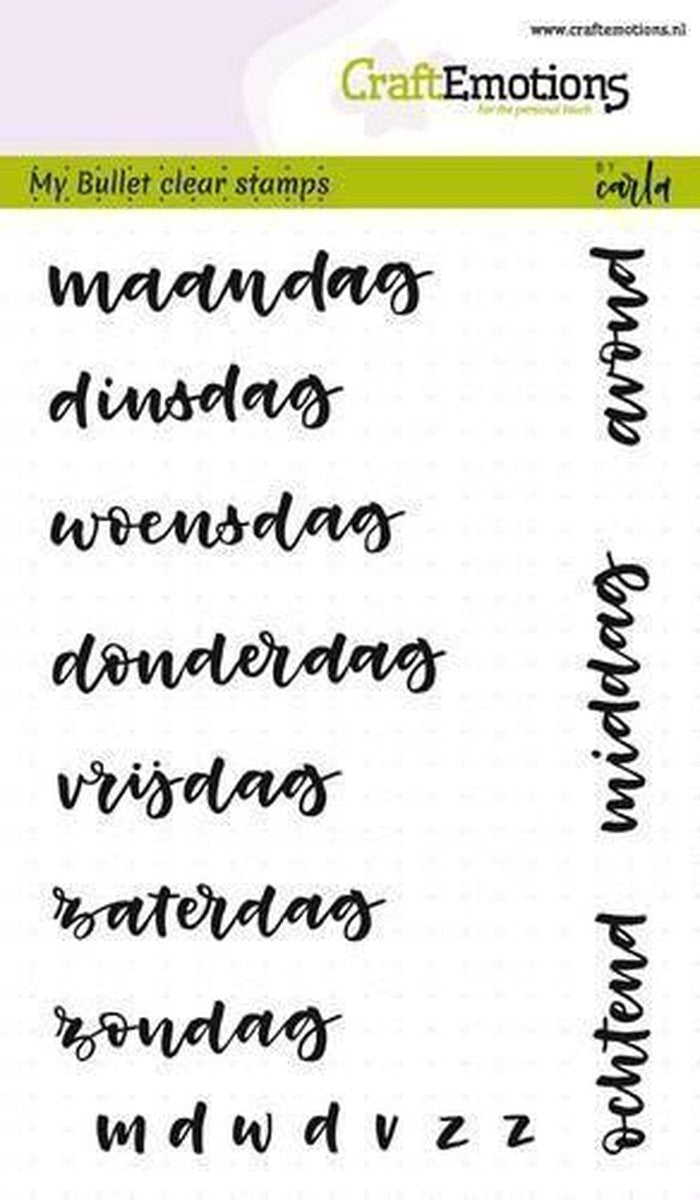 www.craftemotions.nl
CraftEmotions
for the personal touch
My Bullet clear stamps
BY
carla
maandag
dinsdag
woensdag
donderdag
vrijdag
zaterdag
zondag
m d w d v z z
avond
middag
ochtend